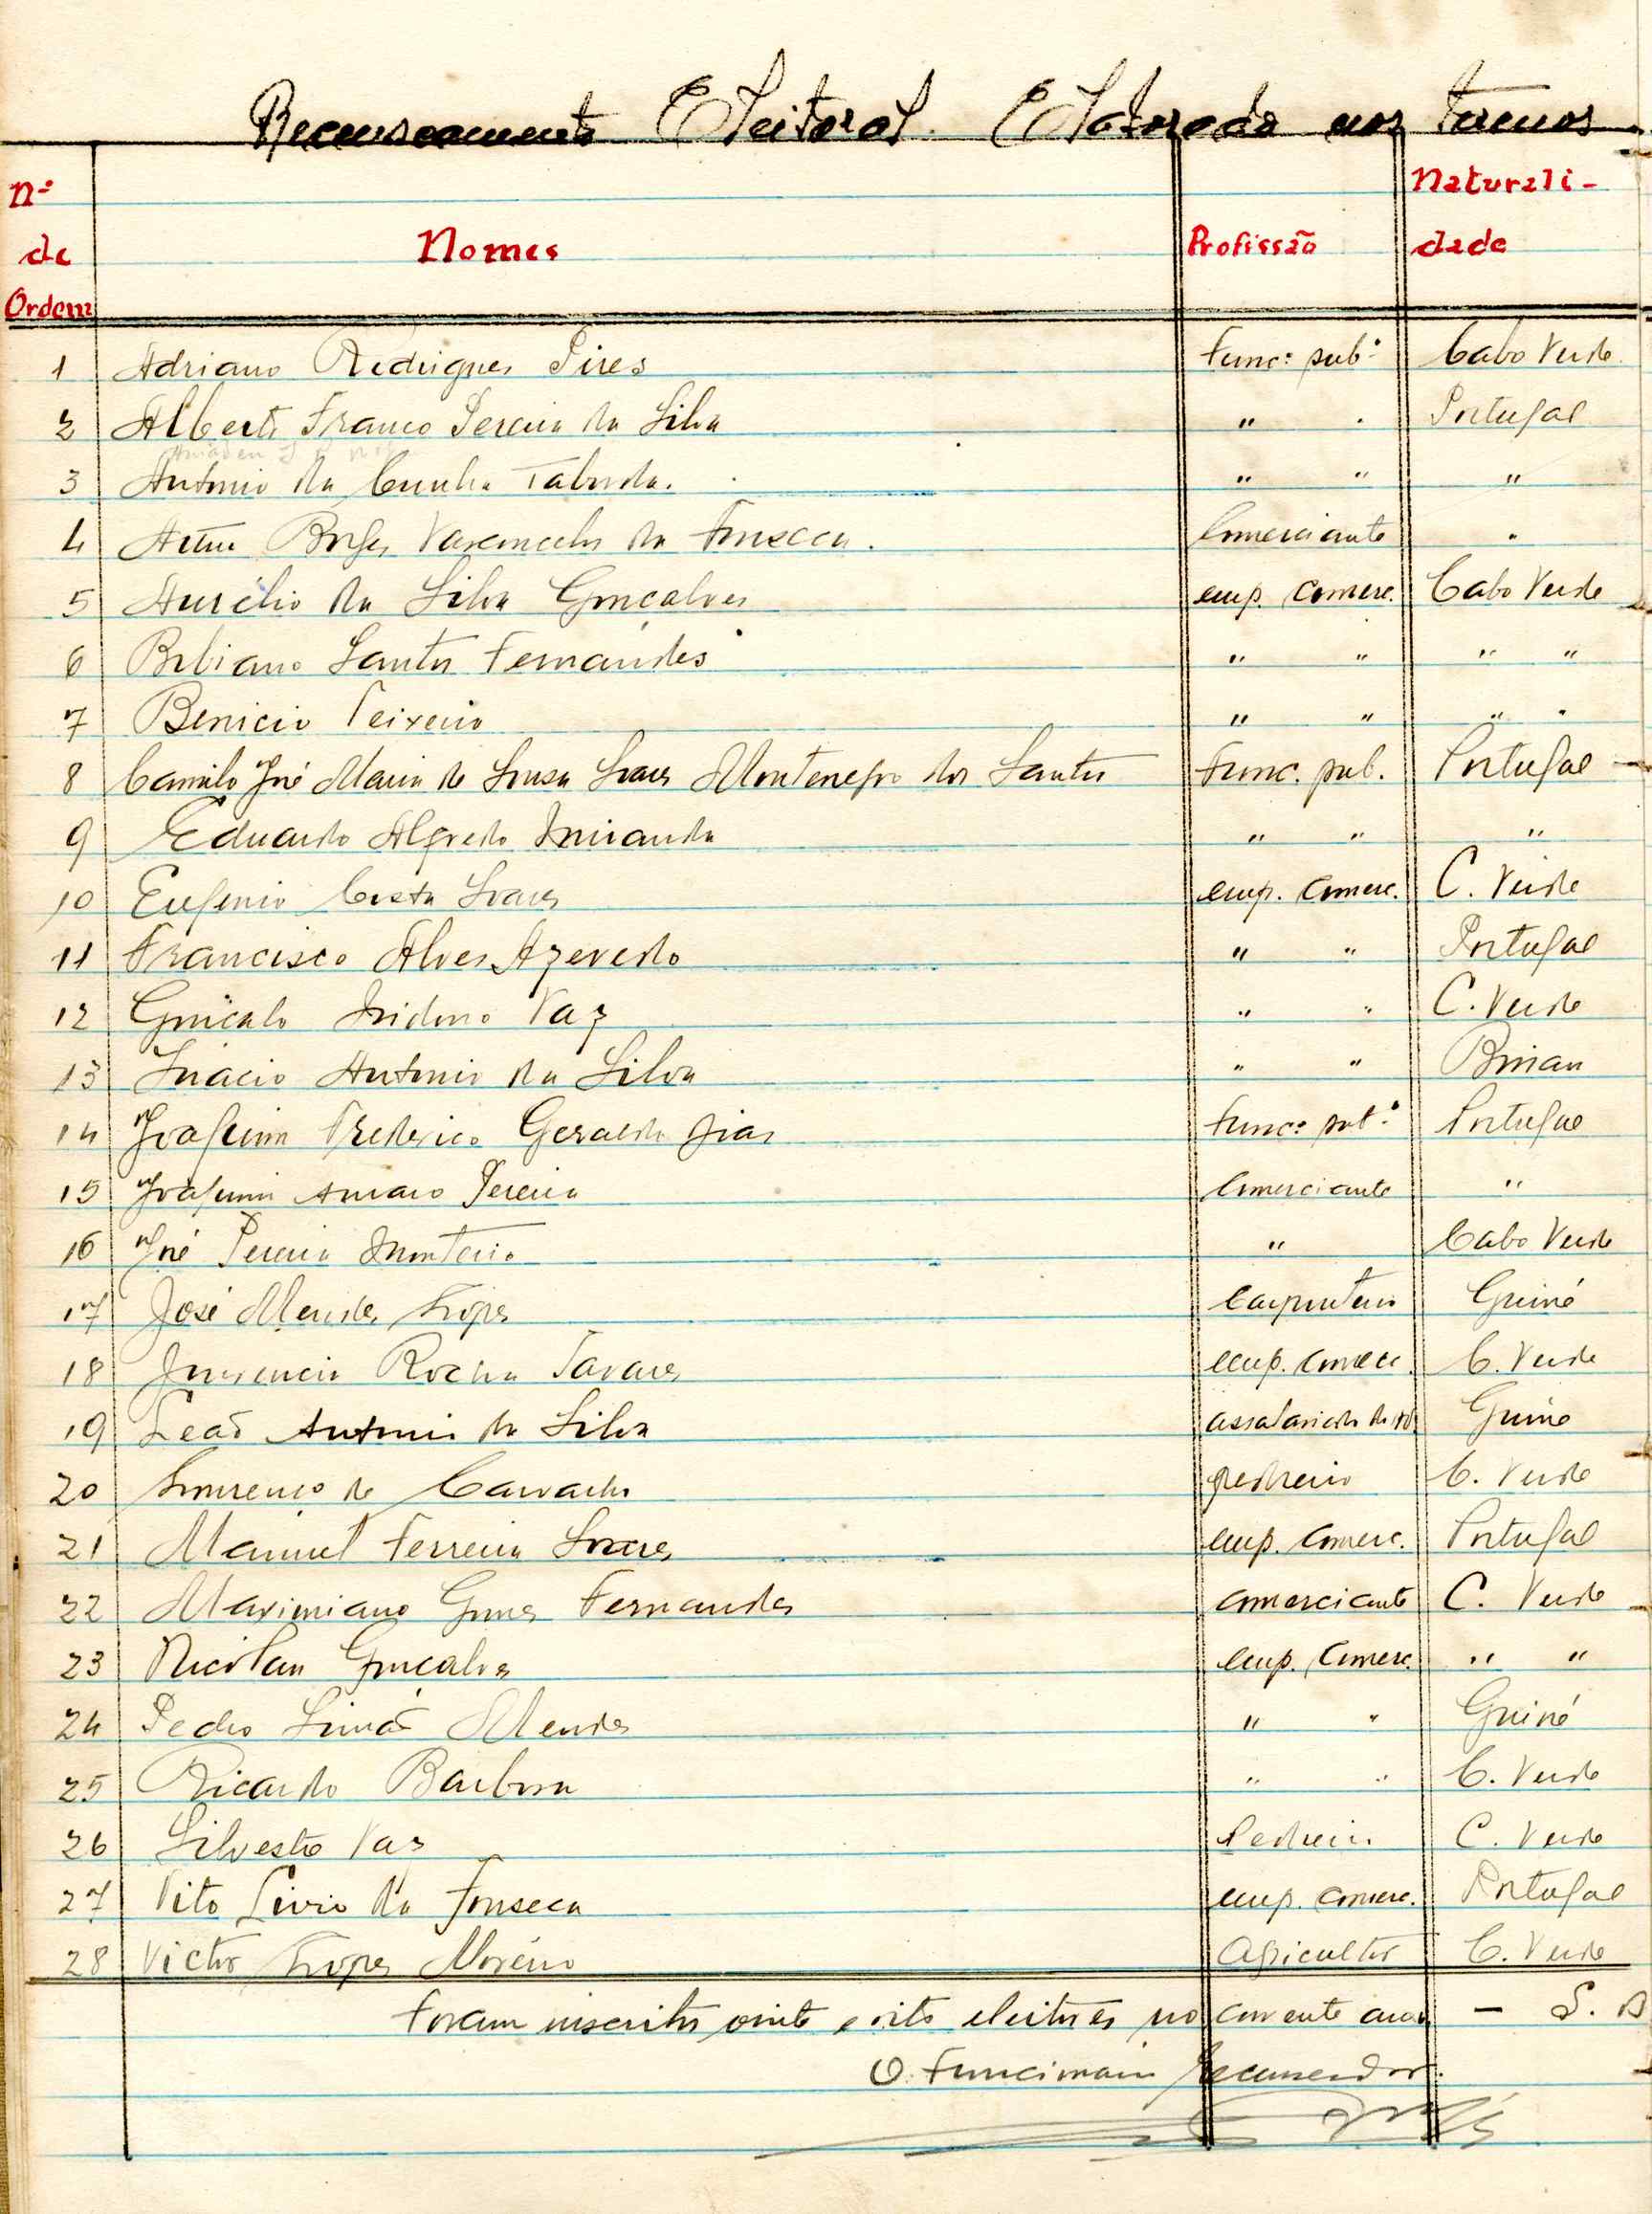 Recenseamento Eleitoral Elaborado nos termos
Nº de Ordem Nomes Profissão Naturalidade
1 Adriano Rodrigues Pires Funcº pubº Cabo Verde
2 Alberto Franco Pereira da Silva " " Portugal
3 Antonio da Cunha Taborda. " " "
4 Artur Borges Vasconcelos da Fonseca. Comerciante "
5 Aurélio da Silva Gonçalves emp. comerc. Cabo Verde
6 Bibiano Santos Fernandes " " " "
7 Benicio Teixeira " " " "
8 Camilo José Maria de Sousa Soares Montenegro dos Santos Func. pub. Portugal
9 Eduardo Alfredo Miranda " " "
10 Eugenio Costa Soares emp. comerc. C. Verde
11 Francisco Alves Azevedo " " Portugal
12 Gonçalo Isidoro Vaz " " C. Verde
13 Inacio Antonio da Silva " "
14 Joaquim Frederico Geraldo Dias Funcº pubº Portugal
15 Joaquim Amaro Pereira Comerciante "
16 José Pereira Monteiro " Cabo Verde
17 José Mendes Lopes Carpinteiro Guiné
18 Juvencio Rocha Tavares emp. comerc. C. Verde
19 Leão Antonio da Silva assalariado da Guiné
20 Lourenço de Carvalho pedreiro C. Verde
21 Manuel Ferreira Soares emp. comerc. Portugal
22 Maximiano Gomes Fernandes comerciante C. Verde
23 Nicolau Gonçalves emp. Comerc. " "
24 Pedro Simão Mendes " " Guiné
25 Ricardo Barbosa " " C. Verde
26 Silvestre Vaz Pedreiro C. Verde
27 Tito Livio da Fonseca emp. comerc. Portugal
28 Victor Lopes Moreno Agricultor C. Verde
Foram inscritos vinte e oito eleitores no corrente ano – S. D
O Funcionario Recenseador.